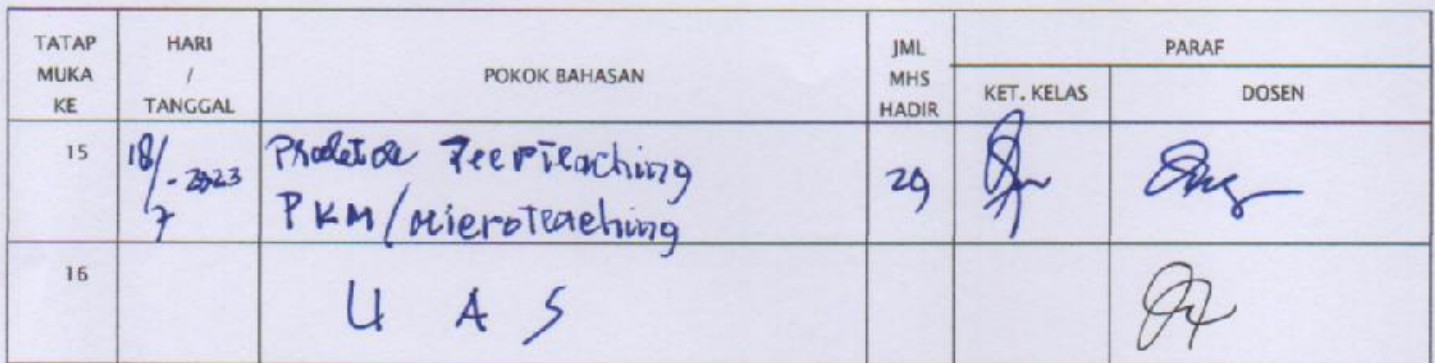 TATAP MUKA KE
HARI / TANGGAL
POKOK BAHASAN
JML MHS HADIR
PARAF
KET. KELAS
DOSEN
15
18/7 - 2023
Peerteaching
PKM/Microteaching
29
16
U A S